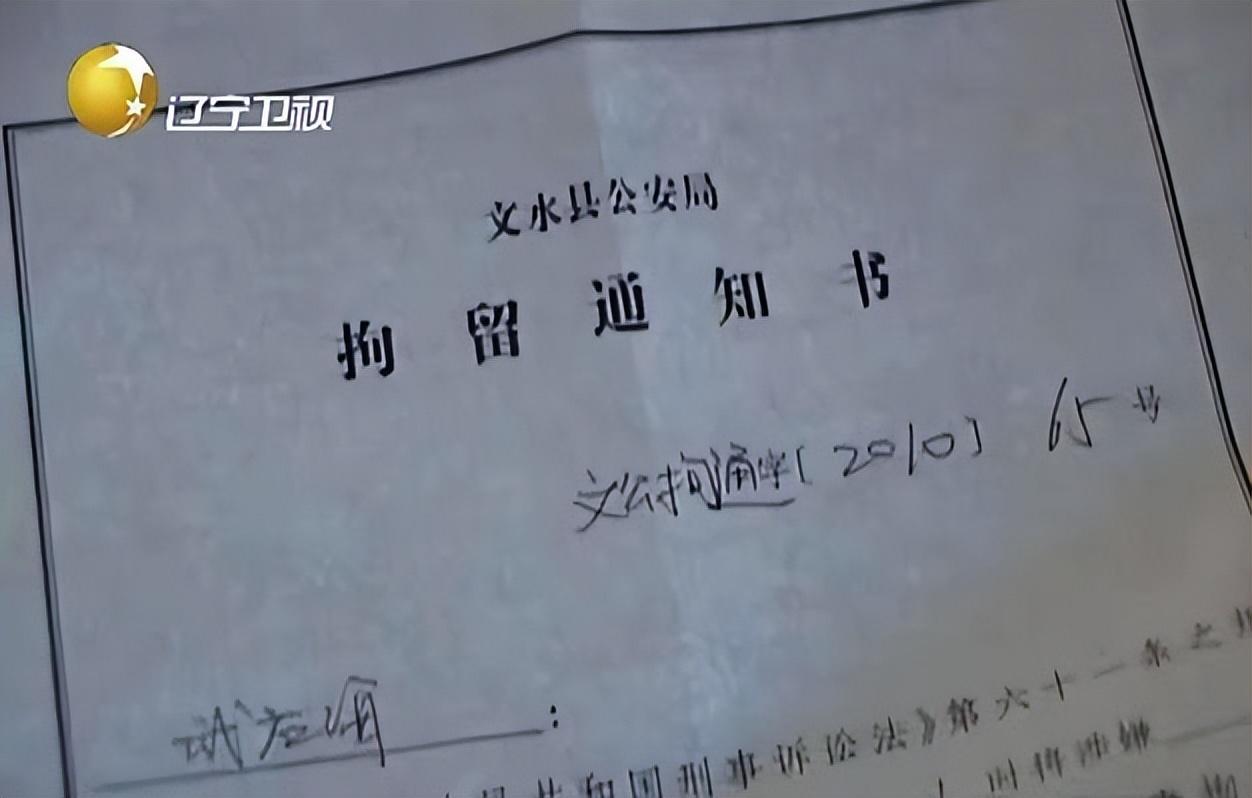 辽宁卫视
文水县公安局
拘留通知书
文公拘通字[2010]65号
:
共和国刑事诉讼法》第六十一条之规
时将涉嫌